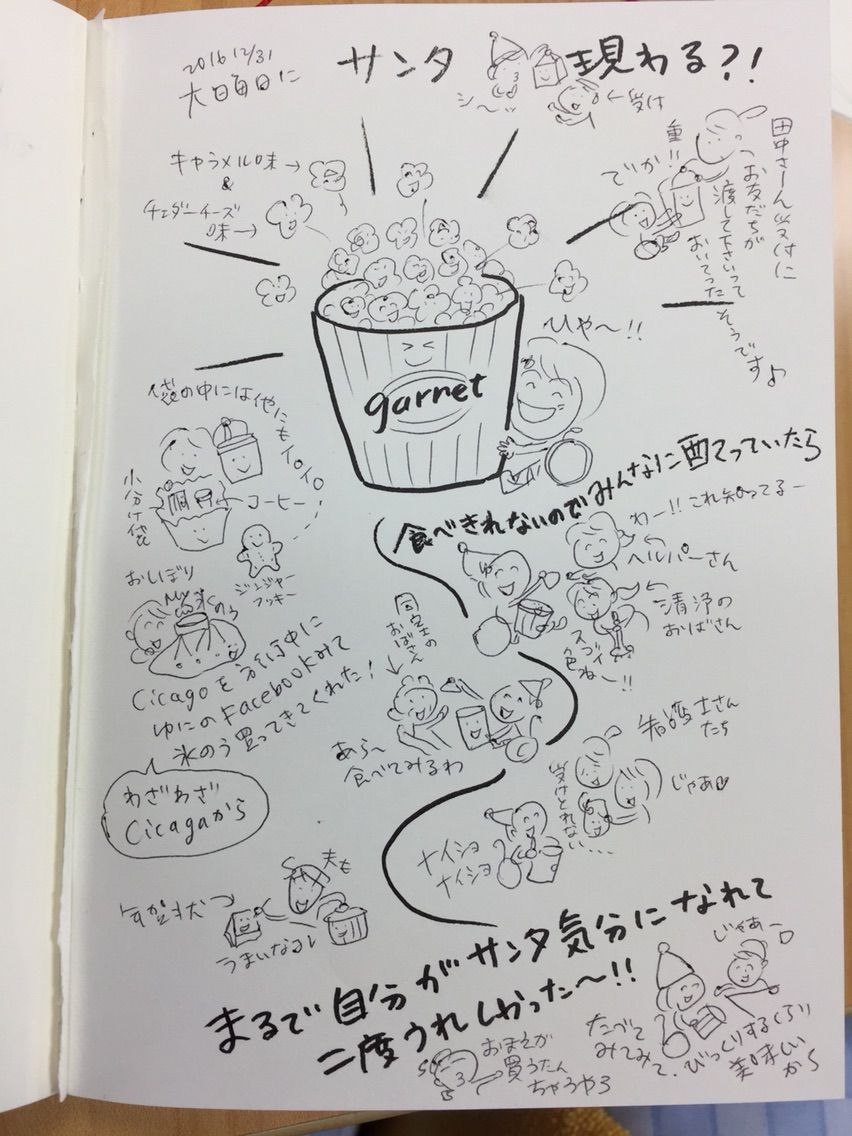 2016 12/31
大日毎日に
サンタ 現わる?!
シ〜ッ
←受け
キャラメル味→
&
チェダーチーズ
味→
田中さーん受付に
お友だちが
渡して下さいって
おいてった
そうです♪
重!!
でか!!
ひゃ〜!!
garnet
袋の中には他にもイロイロ
小分け袋
コーヒー
ジンジャー
クッキー
おしぼり
氷のう
Cicagoを旅行中に
ゆにのFacebookみて
氷のう買ってきてくれた!
わざわざ
Cicagaから
食べきれないのでみんなに配っていたら
わー!!これ知ってるー
ヘルパーさん
清浄の
おばさん
スゴイ
色ね〜!!
同室の
おばさん
あら〜
食べてみるわ
看護士さん
たち
じゃあ
受けとれない....
ナイショ
ナイショ
年賀状→
夫も
うまいなるし
まるで自分がサンタ気分になれて
二度うれしかった〜!!
じゃあー
たべて
みてみて、びっくりするくらい
美味しい
から
おまえが
買うたん
ちゃうやろ